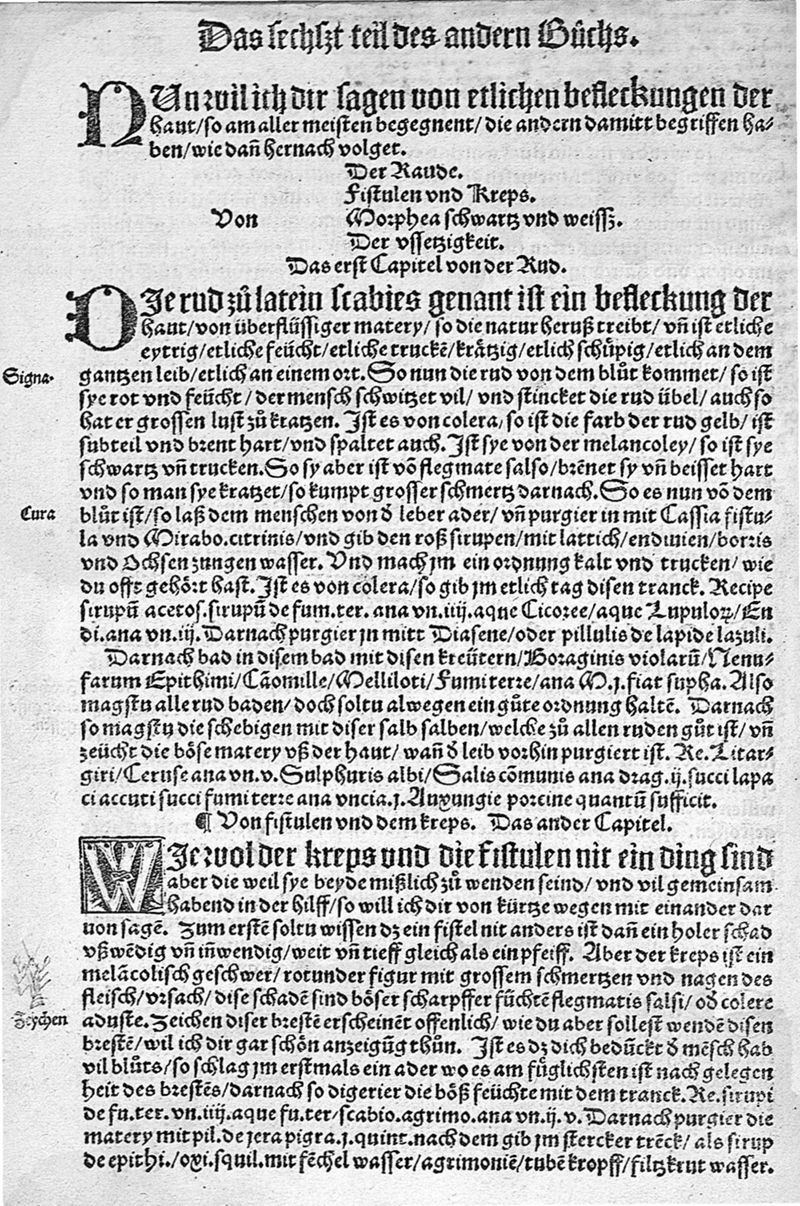 Das sechszt teil des andern Bůchs.
NUn wil ich dir sagen von etlichen befleckungen der
haut/so am aller meisten begegnent/die andern damitt begriffen ha-
ben/wie dañ hernach volget.
Der Raude.
Fistulen vnd Kreps.
Von Morphea schwartz vnd weissz.
Der vssetzigkeit.
Das erst Capitel von der Rud.
DJe rud zů latein scabies genant ist ein befleckung der
haut/von überflüssiger matery/so die natur heruß treibt/vñ ist etliche
eytrig/etliche feücht/etliche truckẽ/krätzig/etlich schüpig/etlich an dem
Signa. gantzen leib/etlich an einem ort. So nun die rud von dem blůt kommet/so ist
sye rot vnd feücht/der mensch schwitzet vil/vnd stincket die rud übel/auch so
hat er grossen lust zů kratzen. Jst es von colera/so ist die farb der rud gelb/ist
subteil vnd brent hart/vnd spaltet auch. Jst sye von der melancoley/so ist sye
schwartz vñ trucken. So sy aber ist võ flegmate salso/brẽnet sy vñ beisset hart
vnd so man sye kratzet/so kumpt grosser schmertz darnach. So es nun võ dem
Cura blůt ist/so laß dem menschen von d̕ leber ader/vñ purgier in mit Cassia fistu-
la vnd Mirabo.citrinis/vnd gib den roß sirupen/mit lattich/endiuien/borris
vnd Ochsen zungen wasser. Vnd mach jm ein ordnung kalt vnd trucken/wie
du offt gehört hast. Jst es von colera/so gib jm etlich tag disen tranck. Recipe
sirupũ acetos.sirupũ de fum.ter. ana vn.iiij.aque Cicoree/aque Lupuloꝝ/En
di.ana vn.iij. Darnach purgier jn mitt Diasene/oder pillulis de lapide lazuli.
Darnach bad in disem bad mit disen kreütern/Boraginis violarũ/Nenu-
farum Epithimi/Cãomille/Melliloti/Fumiterre/ana M.j.fiat supha. Also
magstu alle rud baden/doch soltu alwegen ein gůte ordnung haltẽ. Darnach
so magstu die schebigen mit diser salb salben/welche zů allen ruden gůt ist/vñ
zeücht die böse matery vß der haut/wañ d̕ leib vorhin purgiert ist. Re.Litar-
giri/Ceruse ana vn.v. Sulphuris albi/Salis cõmunis ana drag.ij.succi lapa
ci accuti succi fumi terre ana vncia.j. Auxungie porcine quantũ sufficit.
¶ Von fistulen vnd dem kreps. Das ander Capitel.
WJewol der kreps vnd die fistulen nit ein ding sind
aber die weil sye beyde mißlich zů wenden seind/vnd vil gemeinsam
habend in der hilff/so will ich dir von kürtze wegen mit einander dar
uon sagẽ. Zum erstẽ soltu wissen dz ein fistel nit anders ist dañ ein holer schad
vßwẽdig vñ iñwendig/weit vñ tieff gleich als ein pfeiff. Aber der kreps ist ein
melãcolisch geschwer/rotunder figur mit grossem schmertzen vnd nagen des
fleisch/vrsach/dise schadẽ sind böser scharpffer füchtẽ flegmatis salsi/od̕ colere
Zeychen aduste. Zeichen diser brestẽ erscheinẽt offenlich/wie du aber sollest wendẽ disen
brestẽ/wil ich dir gar schön anzeigũg thůn. Jst es dz dich bedũckt d̕ mẽsch hab
vil blůts/so schlag jm erstmals ein ader wo es am füglichsten ist nach gelegen
heit des brestẽs/darnach so digerier die böß feüchte mit dem tranck. Re.sirupi
de fu.ter.vn.iiij.aque fu.ter/scabio.agrimo.ana vn.ij.v. Darnach purgier die
matery mit pil.de jera pigra.j.quint.nach dem gib jm stercker trẽck/als sirup
de epithi./oxi.squil.mit fẽchel wasser/agrimoniẽ/tubẽ kropff/filtzkrut wasser.